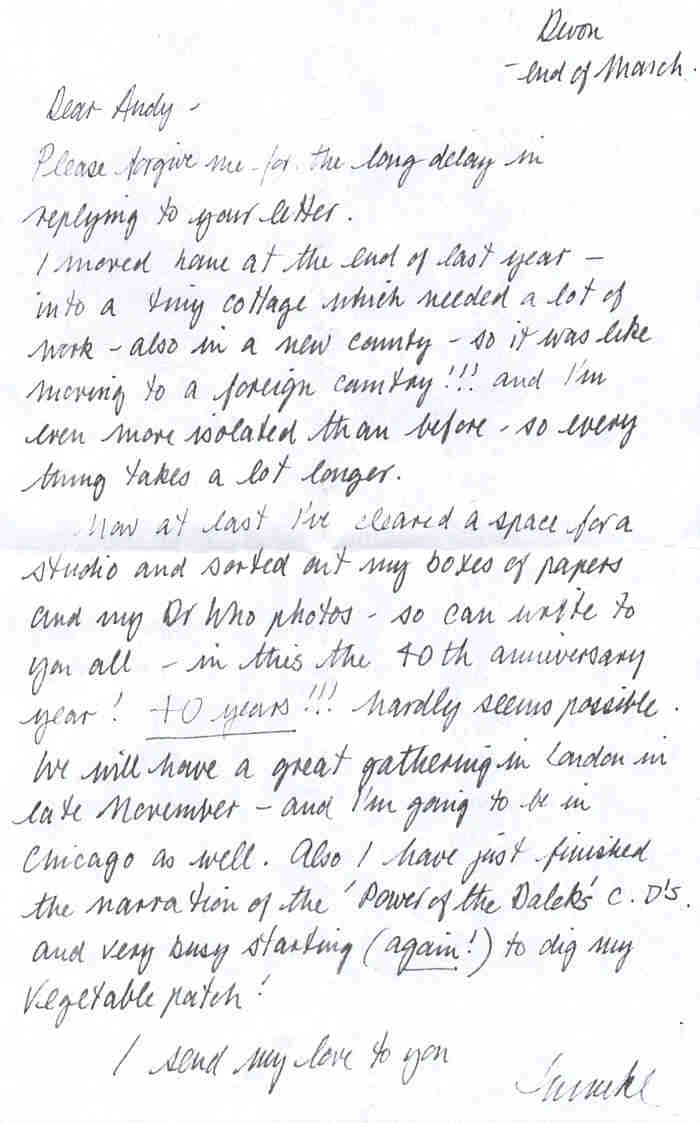 Devon
- end of March.
Dear Andy -
Please forgive me for the long delay in
replying to your letter.
I moved here at the end of last year -
into a tiny cottage which needed a lot of
work - also in a new county - so it was like
moving to a foreign country!!! and I'm
even more isolated than before - so every
thing takes a lot longer.
Now at last I've cleared a space for a
studio and sorted out my boxes of papers
and my Dr Who photos - so can write to
you all - in this the 40th anniversary
year! 40 years!!! hardly seems possible.
We will have a great gathering in London in
late November - and I'm going to be in
Chicago as well. Also I have just finished
the narration of the 'Power of the Daleks' C.D's.
and very busy starting (again!) to dig my
vegetable patch!
I send my love to you
Anneke